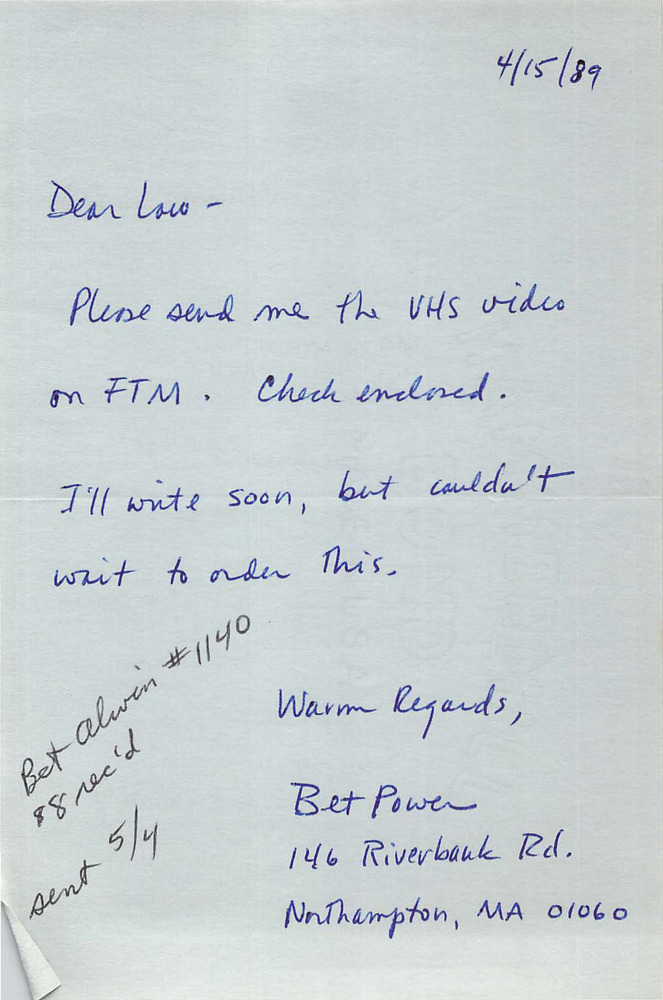 4/15/89
Dear Lou -
Please send me the VHS video
on FTM. Check enclosed.
I'll write soon, but couldn't
wait to order this.
Bet Alwin #1140
88 rec'd
sent 5/4
Warm Regards,
Bet Power
146 Riverbank Rd.
Northampton, MA 01060